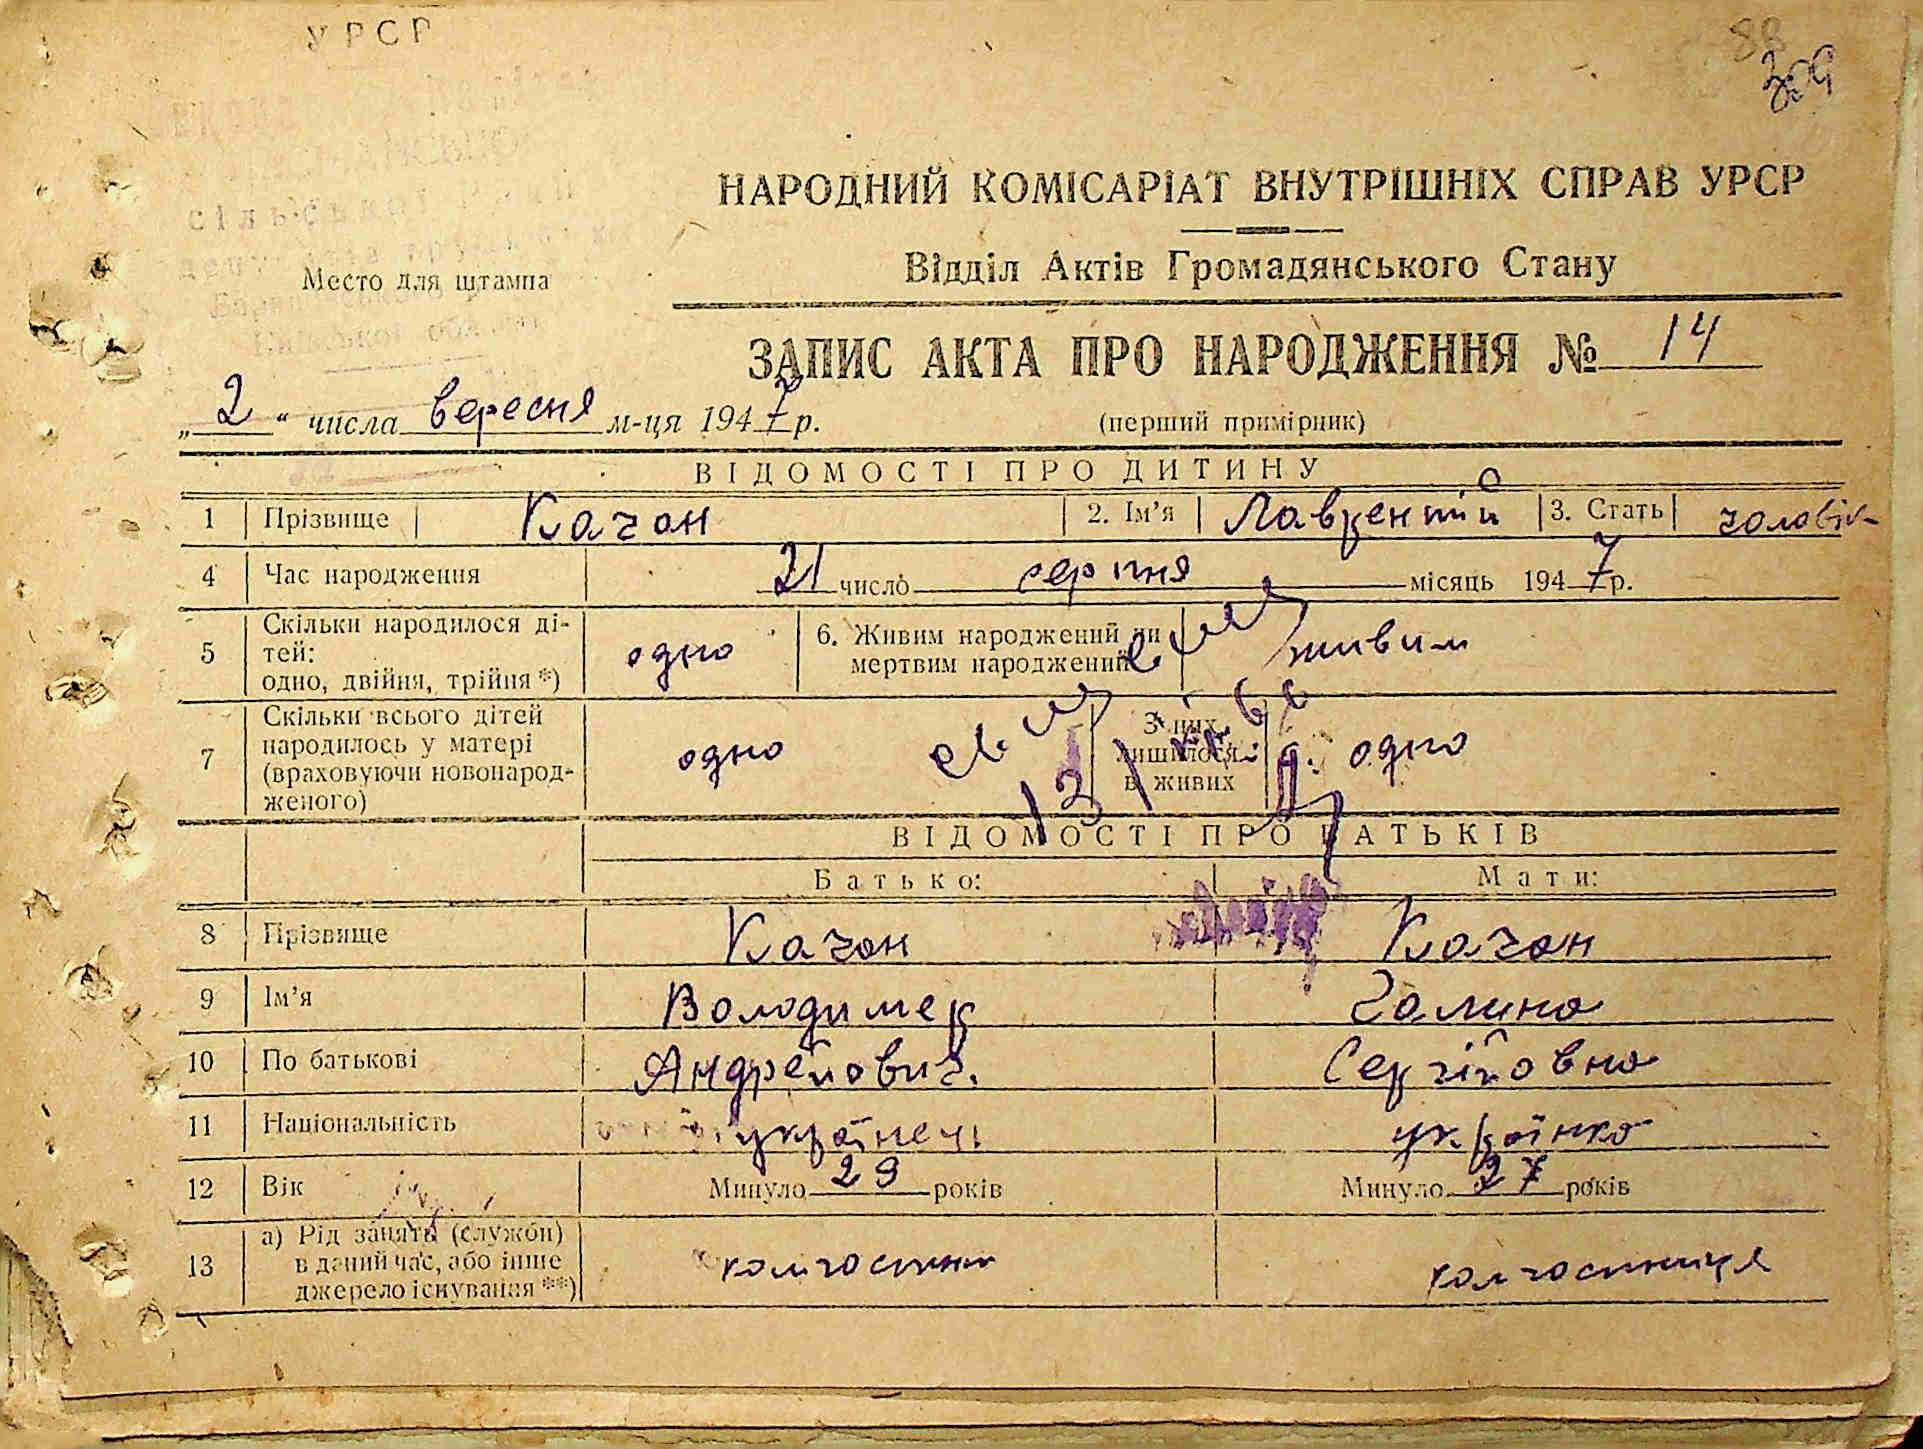 УРСР
88
309
НАРОДНИЙ КОМІСАРІАТ ВНУТРІШНІХ СПРАВ УРСР
Відділ Актів Громадянського Стану
Место для штампа
ЗАПИС АКТА ПРО НАРОДЖЕННЯ № 14
„2“ числа вересня м-ця 1947 р.
(перший примірник)
ВІДОМОСТІ ПРО ДИТИНУ
1 Прізвище Качан 2. Ім’я Лаврентій 3. Стать чоловік
4 Час народження 21 число серпня місяць 1947 р.
5 Скільки народилося ді-
тей:
одно, двійня, трійня *) одно 6. Живим народжений чи
мертвим народжений живим
7 Скільки всього дітей
народилось у матері
(враховуючи новонарод-
женого) одно З них
лишилося
в живих одно
ВІДОМОСТІ ПРО БАТЬКІВ
Батько: Мати:
8 Прізвище Качан Качан
9 Ім’я Володимер Галина
10 По батькові Андрейович Сергійовна
11 Національність українець українка
12 Вік Минуло 29 років Минуло 27 років
13 а) Рід занять (служби)
в даний час, або інше
джерело існування **) колгоспник колгоспниця